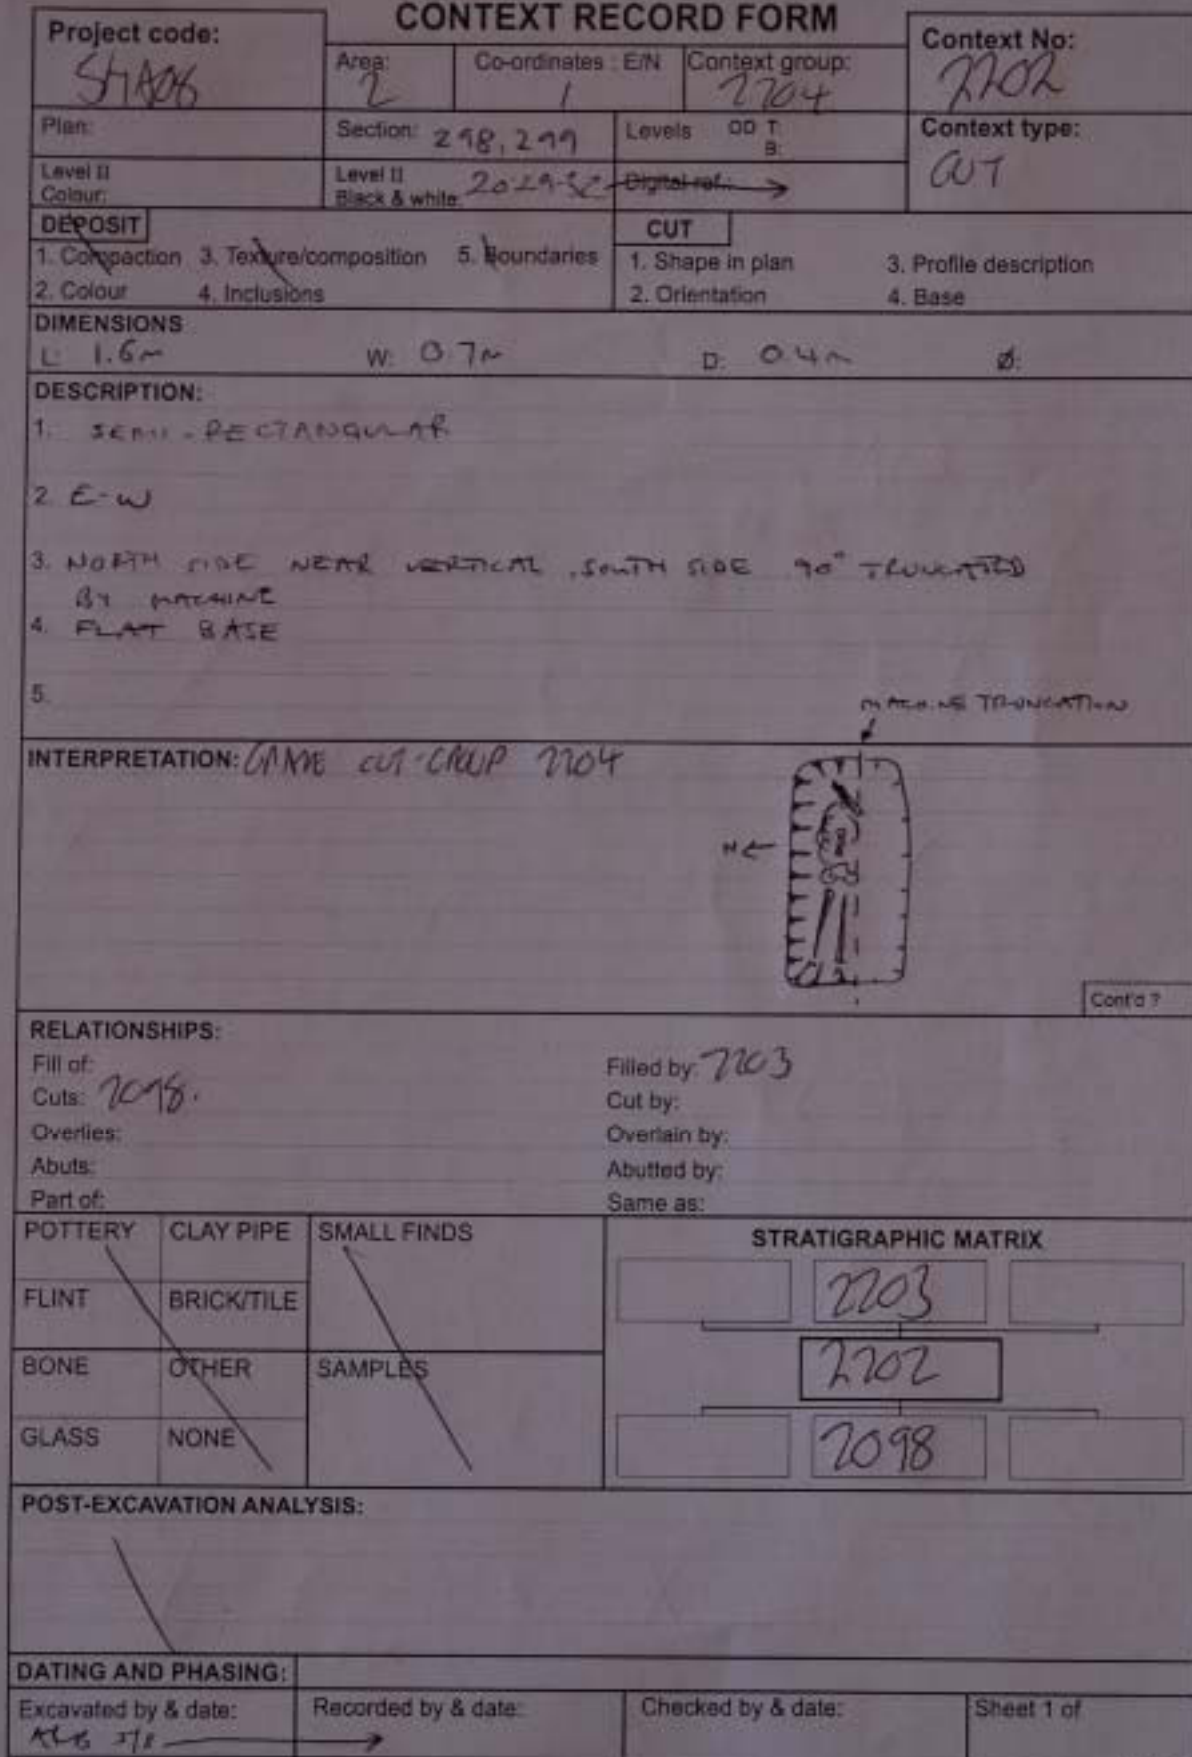 CONTEXT RECORD FORM
Project code:
Area: 2
Co-ordinates : E/N
/
Context group:
2204
Context No:
2202
Plan:
Section: 298, 299
Levels OD T:
B:
Context type:
CUT
Level II
Colour:
Level II
Black & white: 2029-32
Digital ref.:
DEPOSIT
1. Compaction 3. Texture/composition 5. Boundaries
2. Colour 4. Inclusions
CUT
1. Shape in plan 3. Profile description
2. Orientation 4. Base
DIMENSIONS
L: 1.6m W: 0.7m D: 0.4m Ø:
DESCRIPTION:
1. SEMI-RECTANGULAR
2. E-W
3. NORTH SIDE NEAR VERTICAL, SOUTH SIDE 90° TRUNCATED
BY MACHINE
4. FLAT BASE
5.
MACHINE TRUNCATION
INTERPRETATION: GRAVE CUT-GROUP 2204
N
Cont'd ?
RELATIONSHIPS:
Fill of:
Filled by: 2203
Cuts: 2098.
Cut by:
Overlies:
Overlain by:
Abuts:
Abutted by:
Part of:
Same as:
POTTERY CLAY PIPE SMALL FINDS
FLINT BRICK/TILE
BONE OTHER SAMPLES
GLASS NONE
STRATIGRAPHIC MATRIX
2203
2202
2098
POST-EXCAVATION ANALYSIS:
DATING AND PHASING:
Excavated by & date:
Recorded by & date:
Checked by & date:
Sheet 1 of